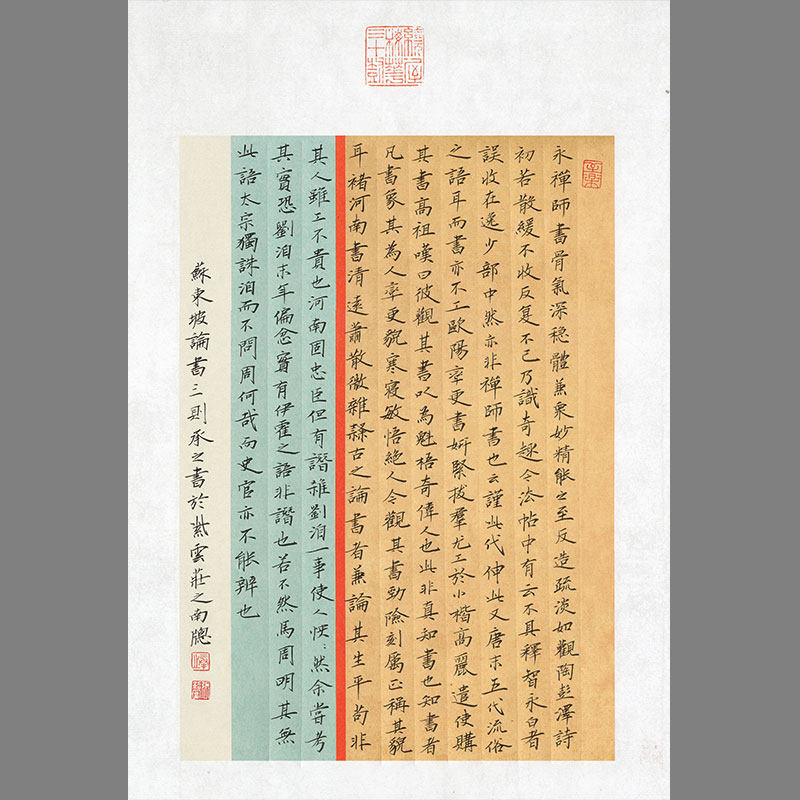 永禪師書骨氣深穩體兼衆妙精能之至反造疏淡如觀陶彭澤詩
初若散緩不收反复不已乃識奇趣今法帖中有云不具釋智永白者
誤收在逸少部中然亦非禪師書也云謹此代伸此又唐末五代流俗
之語耳而書亦不工歐陽率更書妍緊拔羣尤工於小楷高麗遣使購
其書高祖嘆曰彼觀其書以為魁梧奇偉人也此非真知書也知書者
凡書象其為人率更貌寒寢敏悟絕人今觀其書勁險刻厲正稱其貌
耳褚河南書清遠蕭散微雜隸古之論書者兼論其生平苟非
其人雖工不貴也河南固忠臣但有譖殺劉洎一事使人怏:然余嘗考
其實恐劉洎末年偏忿實有伊霍之語非譖也若不然馬周明其無
此語太宗獨誅洎而不問周何哉而史官亦不能辨也
蘇東坡論書三則承之書於紫雲莊之南牕